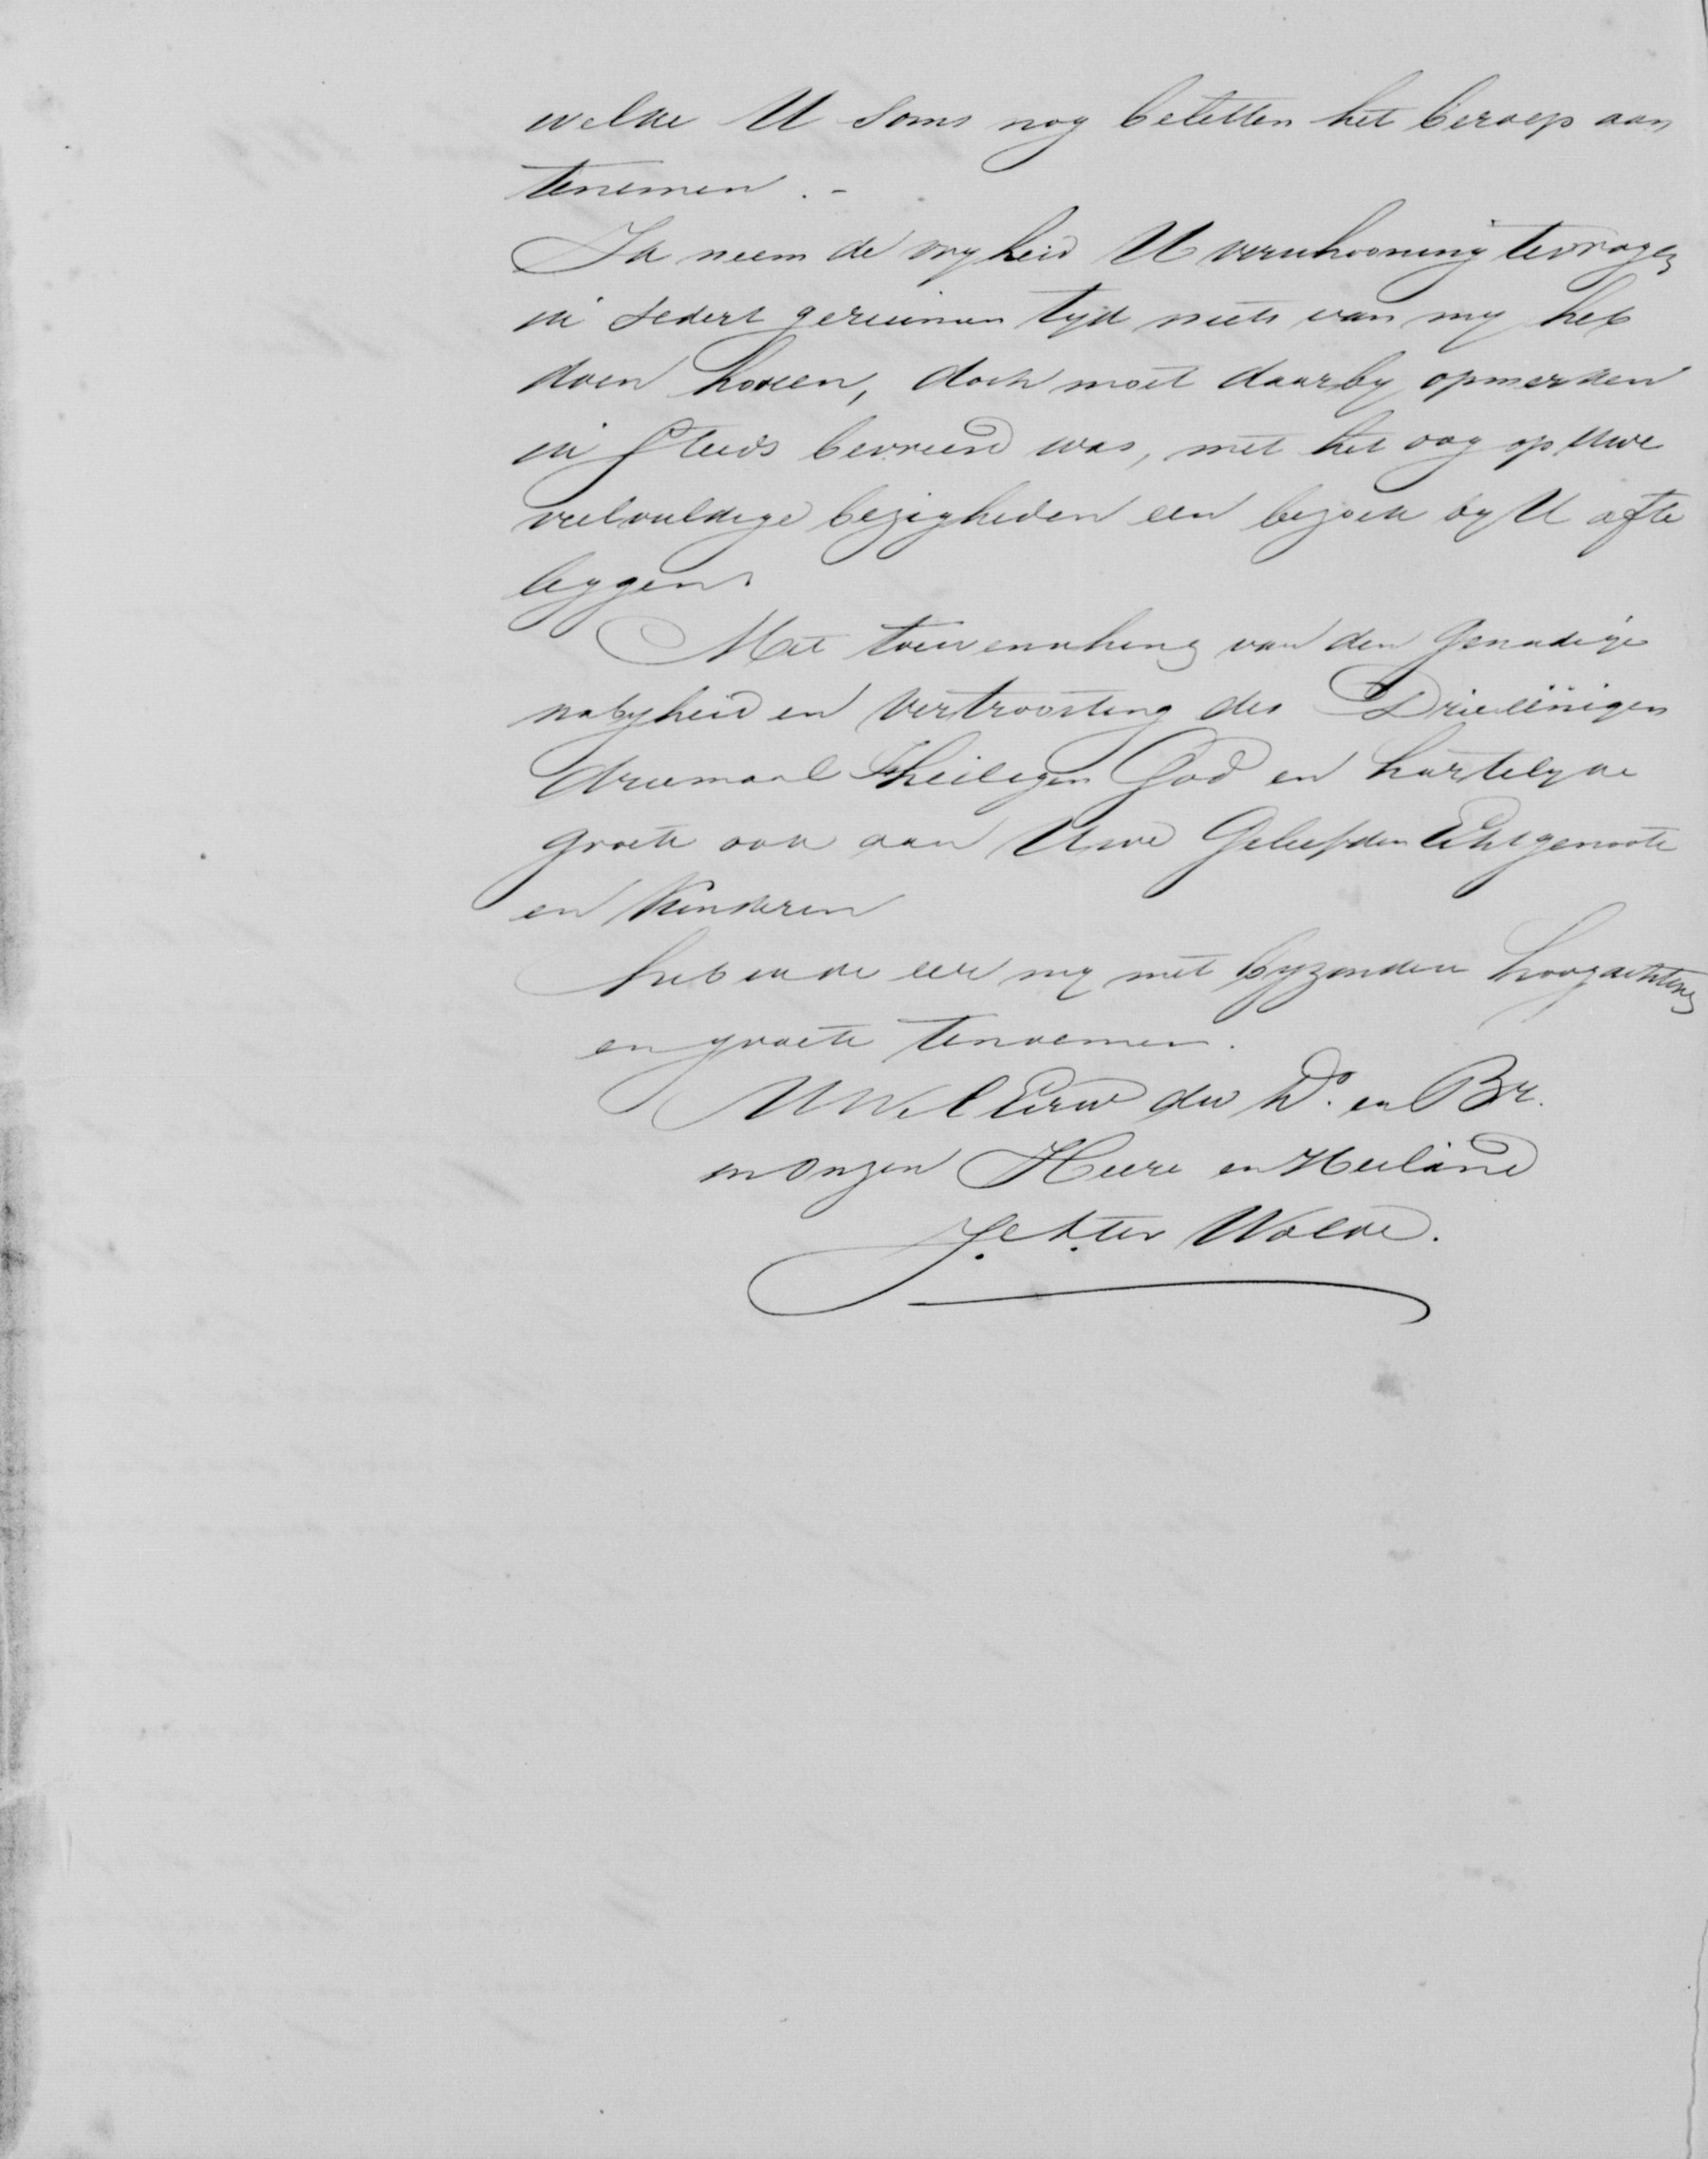 welke U soms nog beletten het beroep aan
tenemen. -
Ik neem de vryheid U verschooning tevragen
ik sedert geruimen tyd niets van my heb
doen hooren, doch moet daarby opmerken
ik steeds bevreesd was, met het oog op Uwe
veelvuldige bezigheden een bezoek by U afte
leggen.
Met toewensching van den Genadige
nabyheid en vertroosting des Drieëenigen
driemaal Heiligen God en hartelyke
groete ook aan Uwe Geliefden Echtgenoote
en Kinderen
heb ik de eer my met byzondere hoogachting
en groete tenoemen.
UWelEerw dw D. en Br.
in onzen Heere en Heiland
ter Wolde.